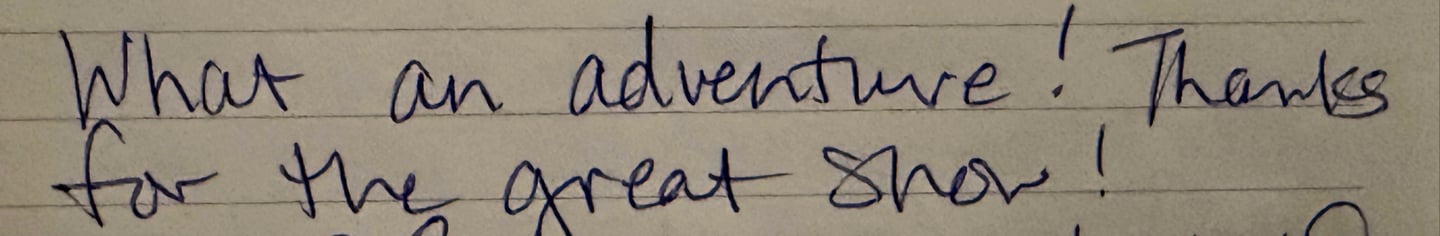 What an adventure! Thanks
for the great show!